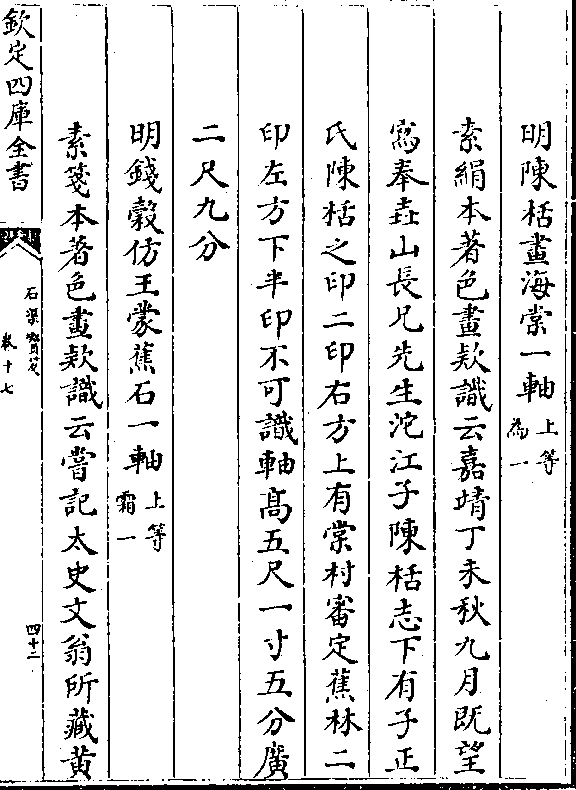 明陳栝畫海棠一軸 上等
為一
素絹本著色畫欵識云嘉靖丁未秋九月既望
寫奉壵山長兄先生沱江子陳栝志下有子正
氏陳栝之印二印右方上有棠村審定蕉林二
印左方下半印不可識軸高五尺一寸五分廣
二尺九分
明錢穀仿王蒙蕉石一軸 上等
霜一
素箋本著色畫欵識云嘗記太史文翁所藏黄
欽定四庫全書
石渠寳笈
卷十七
四十二